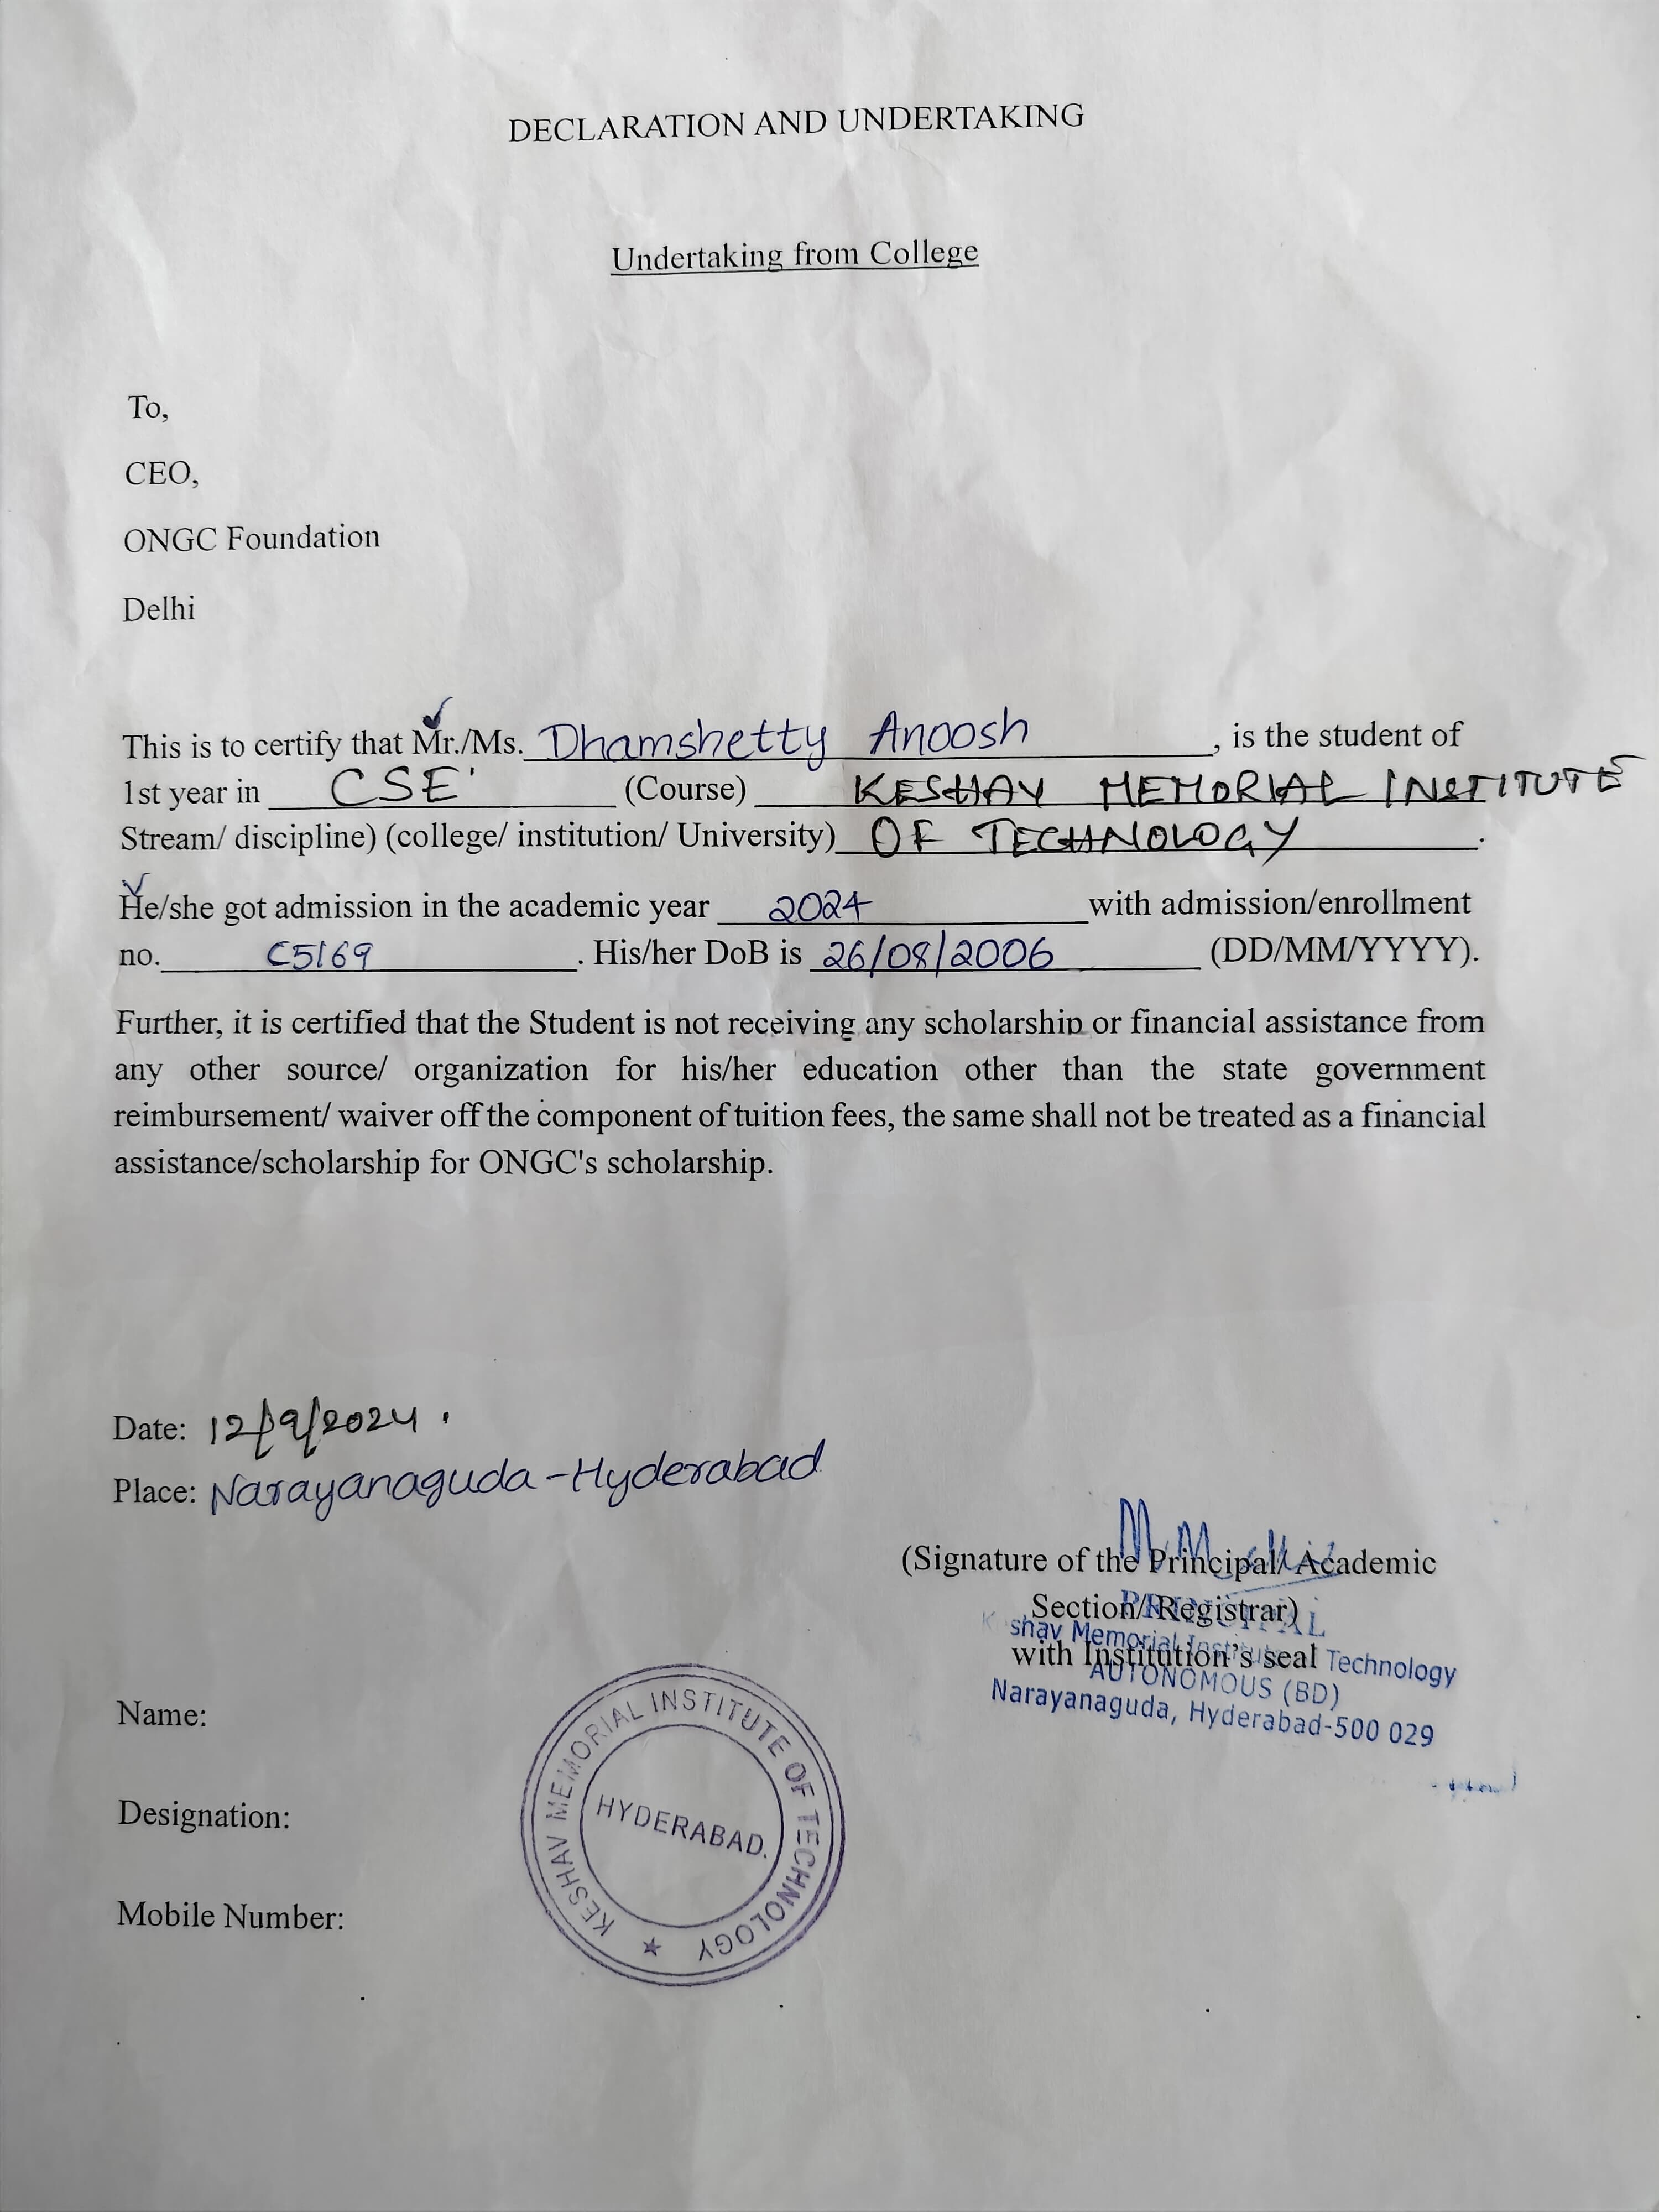 DECLARATION AND UNDERTAKING
Undertaking from College
To,
CEO,
ONGC Foundation
Delhi
This is to certify that Mr./Ms. Dhamshetty Anoosh, is the student of
1st year in CSE (Course) KESHAV MEMORIAL INSTITUTE
Stream/ discipline) (college/ institution/ University) OF TECHNOLOGY.
He/she got admission in the academic year 2024 with admission/enrollment
no. C5169. His/her DoB is 26/08/2006 (DD/MM/YYYY).
Further, it is certified that the Student is not receiving any scholarship or financial assistance from
any other source/ organization for his/her education other than the state government
reimbursement/ waiver off the component of tuition fees, the same shall not be treated as a financial
assistance/scholarship for ONGC's scholarship.
Date: 12/9/2024.
Place: Narayanaguda-Hyderabad
(Signature of the Principal/ Academic
Section/ Registrar)
with Institution's seal
PRINCIPAL
Keshav Memorial Institute Technology
AUTONOMOUS (BD)
Narayanaguda, Hyderabad-500 029
Name:
Designation:
Mobile Number:
KESHAV MEMORIAL INSTITUTE OF TECHNOLOGY ★
HYDERABAD.